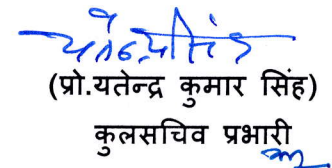 (प्रो.यतेन्द्र कुमार सिंह)
कुलसचिव प्रभारी